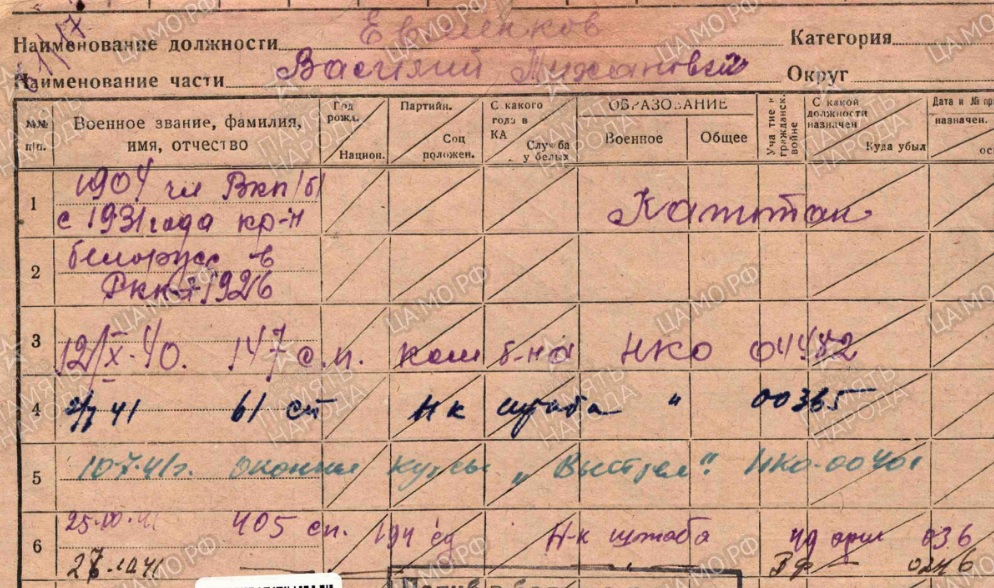 Евменков
Наименование должности Категория
Василий
Наименование части Округ
№№ п/п. Военное звание, фамилия, имя, отчество Год рожд. Национ. Партийн. Соц положен. С какого года в КА Служба у белых ОБРАЗОВАНИЕ Военное Общее Участие в гражданск. войне С какой должности назначен Куда убыл Дата и № пр назначен.
1 1904 чл ВКП/б/
с 1931 года кр-н Капитан
2 белорусс в
РККА 1926
3 12/IX-40. 147 с.п. ком б-на НКО 04482
4 41 61 сп Н-к штаба " 00365
5 10-7-41г. окончил курсы „Выстрел". НКО-00401
6 405 сп. 194 сд Н-к штаба 49 арм 036
27.10.41
ЦАМО РФ
ПАМЯТЬ НАРОДА